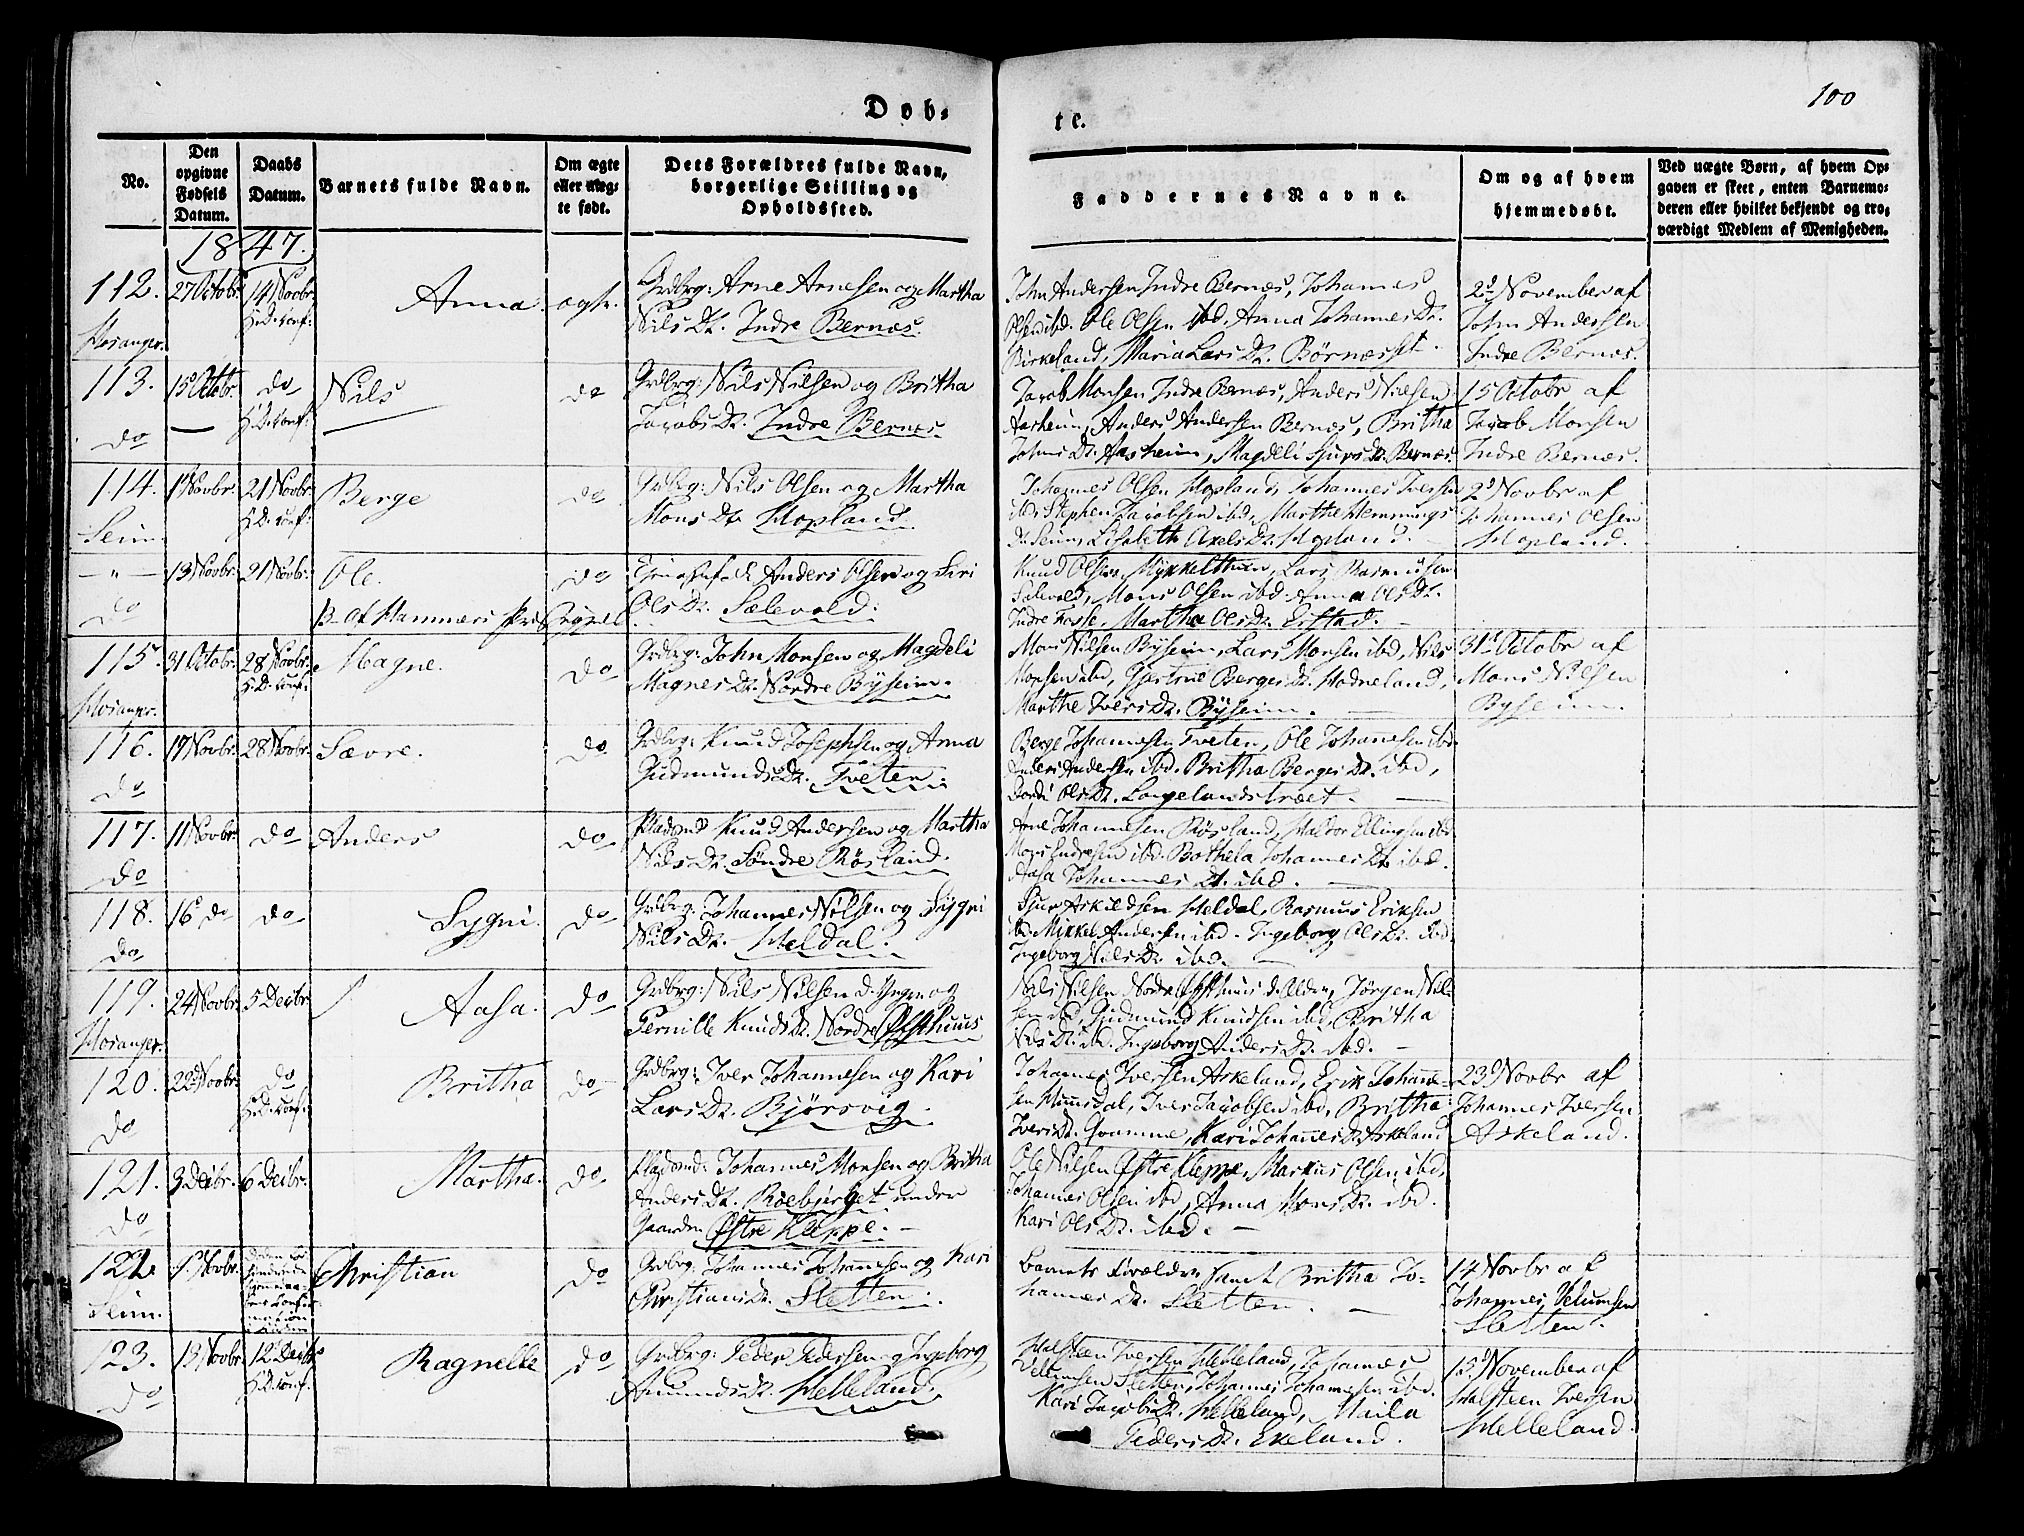 100
Døb-
te.
No.
Den opgivne Fødsels Datum.
Daabs Datum.
Barnets fulde Navn.
Om ægte eller uæg-te født.
Dets Forældres fulde Navn, borgerlige Stilling og Opholdssted.
Faddernes Navne.
Om og af hvem hjemmedøbt.
Ved uægte Børn, af hvem Op-gaven er skeet, enten Barnemo-deren eller hvilket bekjendt og tro-værdigt Medlem af Menigheden.
1847.
112. 27 Octobr. 14 Novbr. Anna. ægte. Grdbrg: Arne Arnesen og Martha
Hosanger. H.D. conf: Nils Dr. Indre Bernæs.
John Andersen Indre Bernæs, Johannes
Olsen ibd. Ole Olsen ibd. Anna Johannes Dr.
Birkeland, Maria Lars Dr. Børnæsset.
2d November af
John Andersen
Indre Bernæs.
113. 15 Octobr. do Nils do Grdbrg: Nils Nilsen og Britha
do H.D. conf: Jacobs Dr. Indre Bernæs.
Jacob Monsen Indre Bernæs, Anders Nilsen
Aasheim, Anders Andersen Bernæs, Britha
Johns Dr. Aasheim, Magdeli Sjurs Dr. Bernæs.
15 Octobr af
Jacob Monsen
Indre Bernæs.
114. 1 Novbr. 21 Novbr. Berge do Grdbrg: Nils Olsen og Martha
Seim. H.D. conf: Mons Dr. Hopland.
Johannes Olsen Hopland, Johannes Iversen
ibd. Stephen Jacobsen ibd. Marthe Hemmings
Dr. Seim, Lisabeth Axels Dr. Hopland.
2d Novbr af
Johannes Olsen
Hopland.
— " — 13 Novbr. 21 Novbr. Ole. do Anders Olsen og Siri
do Hammers Ols Dr. Sælevold.
Knud Olsen Mykkelthun, Lars Rasmussen
Sælevold, Mons Olsen ibd. Anna Ols Dr.
Indre Fosse, Martha Ols Dr. Eistad.
115. 31 Octobr. 28 Novbr. Magne. do Grdbrg: John Monsen og Magdeli
Hosanger. H.D. conf: Magnes Dr. Nordre Byseim.
Mons Nilsen Byseim, Lars Monsen ibd, Nils
Monsen ibd, Gjertrue Berges Dr. Hodneland,
Marthe Ivers Dr. Byseim.
31 Octobr af
Mons Nilsen
Byseim.
116. 17 Novbr. 28 Novbr. Sævre. do Grdbrg: Knud Josephsen og Anna
do Gudmunds Dr. Tveten.
Berge Johannesen Tveten, Ole Johannesen ibd.
Anders Andersen ibd. Britha Berges Dr. ibd,
Dordi Ols Dr. Langelandstræet.
117. 11 Novbr. do Anders do Pladsmd Knud Andersen og Martha
do Nils Dr. Søndre Røsland.
Arne Johannesen Røsland, Haldor Ellingsen ibd
Mons Endresen ibd. Bothela Johannes Dr. ibd.
Aasa Johannes Dr. ibd.
118. 16 do do Sygni. do Grdbrg: Johannes Nilsen og Sygni
do Nils Dr. Heldal.
Sjur Askildsen Heldal, Rasmus Eriksen
ibd. Mikkel Andersen ibd. Ingeborg Ols Dr. ibd.
Ingeborg Nils Dr. ibd.
119. 24 Novbr. 5 Decbr. Aasa. do Grdbrg: Nils Nilsen d. Yngre og
Hosanger. Pernille Knuds Dr. Nordre Ofsthuus
Nils Nilsen Nordre Ofsthuus d. Ældre, Jørgen Nil-
sen ibd. Gudmund Knudsen ibd, Britha
Nils Dr. ibd. Ingeborg Anders Dr. ibd.
120. 22 Novbr. do Britha do Grdbrg: Iver Johannesen og Kari
do H.D. conf: Lars Dr. Bjørsvig.
Johannes Iversen Askeland, Erik Johanne-
sen Humsdal, Iver Jacobsen ibd, Britha
Ivers Dr. Qvamme, Kari Johannes Dr. Askeland
23 Novbr af
Johannes Iversen
Askeland.
121. 3 Decbr. 6 Decbr. Martha. do Pladsmd: Johannes Monsen og Britha
do Anders Dr. Roebjerget under
Gaarden Østre Kleppe.
Ole Nilsen Østre Kleppe, Markus Olsen ibd,
Johannes Olsen ibd, Anna Mons Dr. ibd.
Kari Ols Dr. ibd.
122. 1 Novbr. Christian do Grdbrg: Johannes Johannesen og Kari
Seim. Christians Dr. Sletten.
Barnets Forældre samt Britha Jo-
hannes Dr. Sletten.
14 Novbr af
Johannes Velumsen
Sletten.
123. 13 Novbr. 12 Decbr. Ragnelle do Grdbrg: Peder Pedersen og Ingeborg
do H.D. conf. Amunds Dr. Helleland.
Halsteen Iversen Helleland, Johannes
Velumsen Sletten, Johannes Johannesen ibd.
Kari Jacobs Dr. Helleland, Maila
Peders Dr. Ekeland.
15 November af
Halsteen Iversen
Helleland.